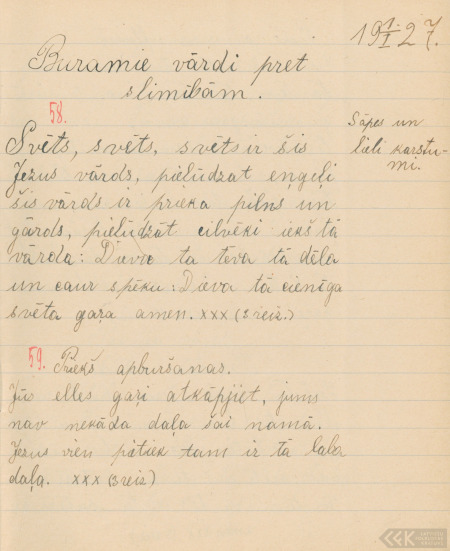 19 1/I 27.
Buramie vārdi pret
slimībām.
58.
Sāpes un
lieli karstu-
mi.
Svēts, svēts, svēts ir šis
Jezus vārds, pielūdzat eņģeļi
šis vārds ir prieka pilns un
gārds, pielūdzāt cilvēki iekš tā
vārda: Dieva ta tēva tā dēla
un caur spēku: Dieva tā cienīga
svēta gaŗa amen. xxx (3 reiz.)
59. Priekš apburšanas.
Jūs elles gaŗi atkāpjiet, jums
nav nekāda daļa šai namā.
Jezus vien pietiek tam ir tā laba
daļa. xxx (3 reiz)